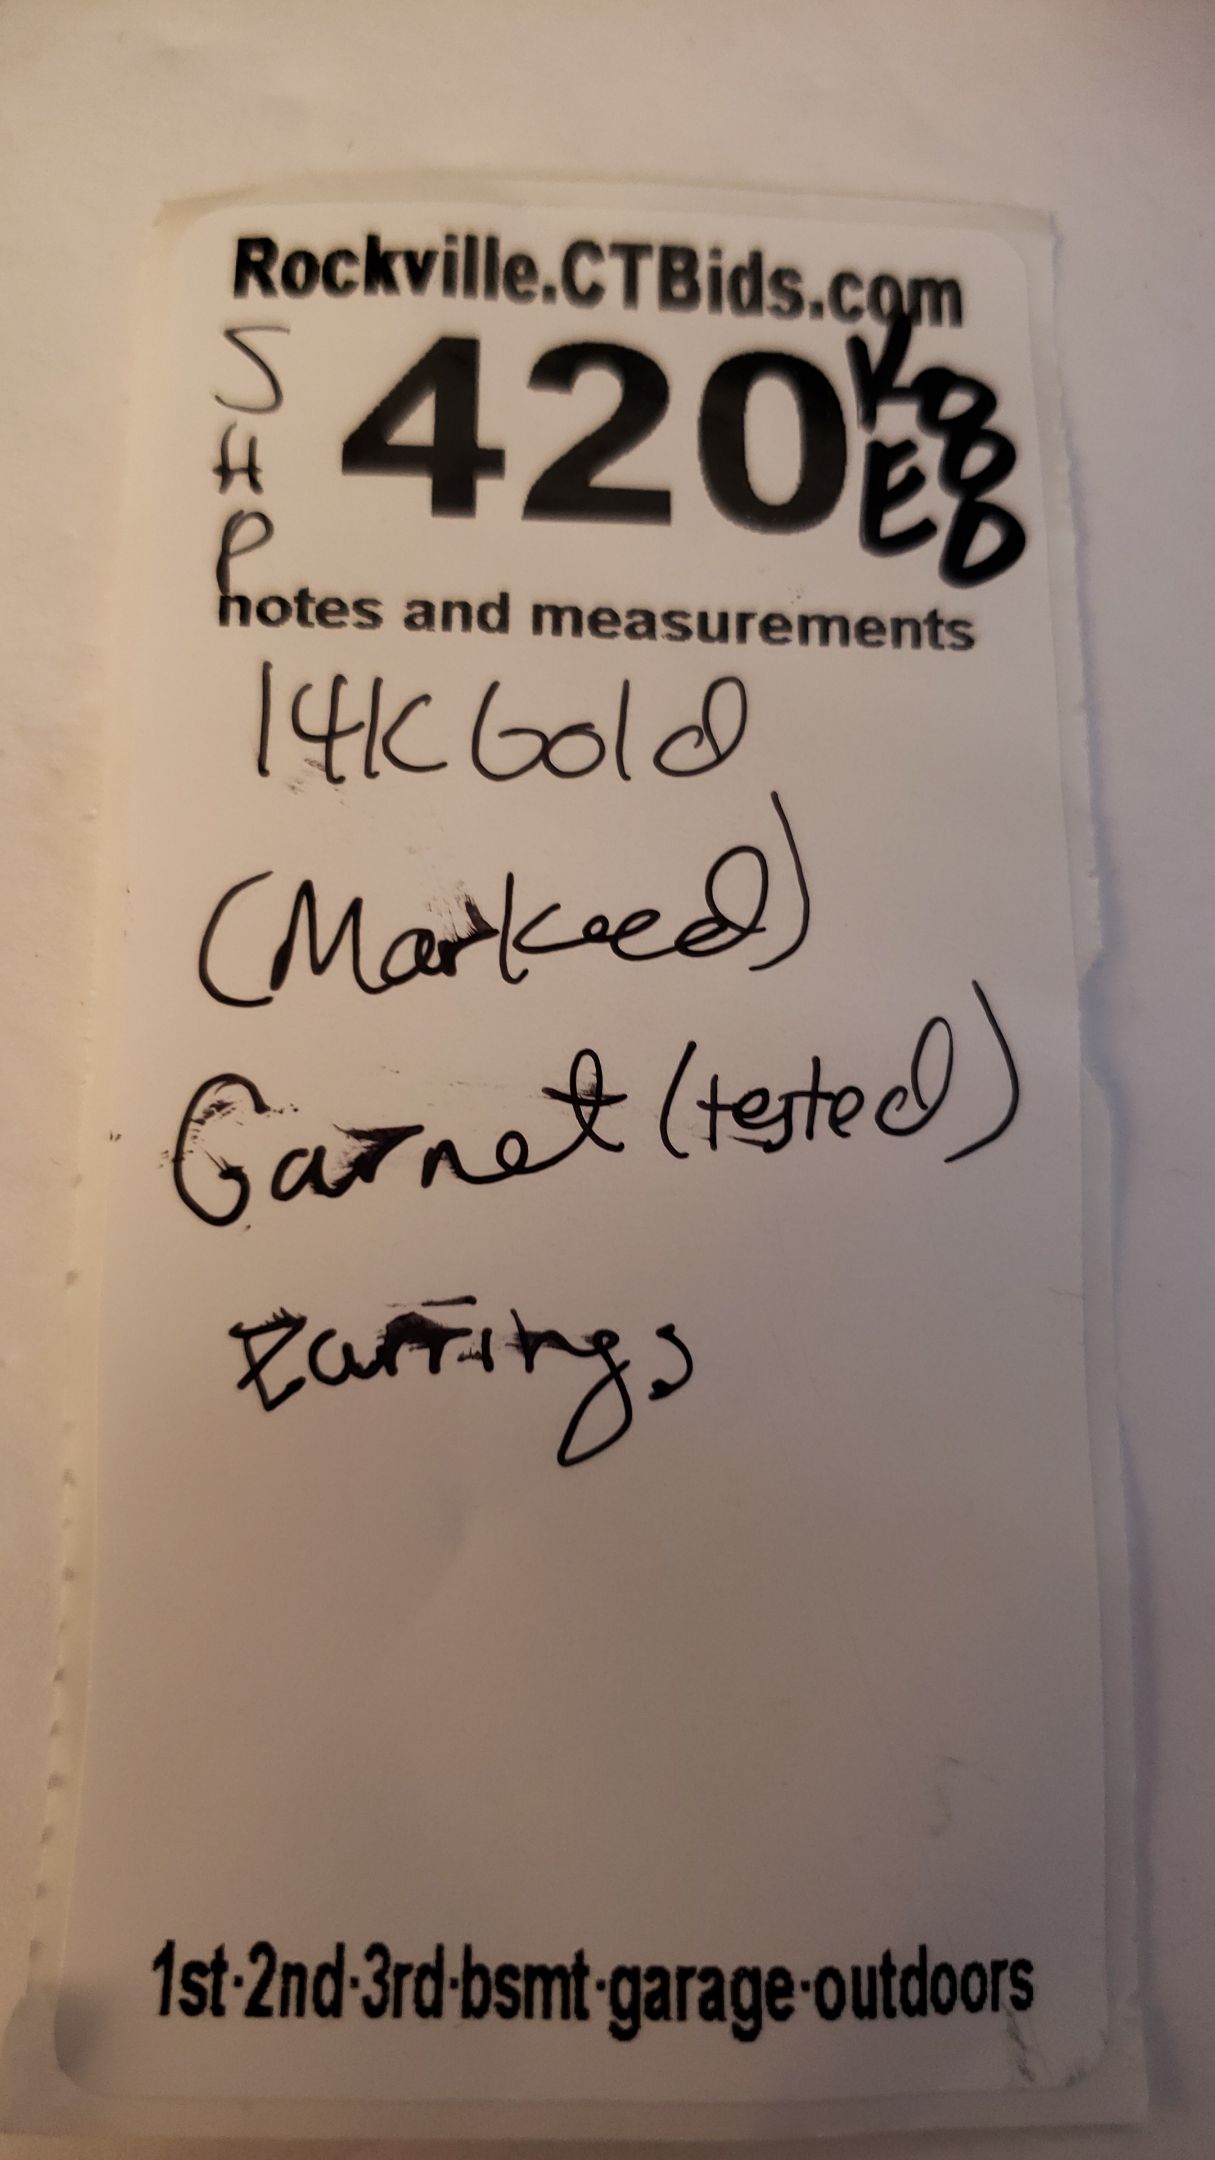 Rockville.CTBids.com
SHP
420
notes and measurements
14K Gold
(Marked)
Garnet (tested)
Earrings
1st·2nd·3rd·bsmt·garage·outdoors